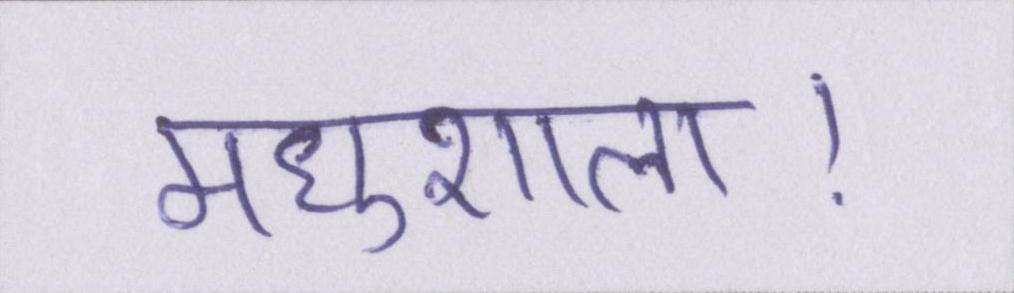 मधुशाला!